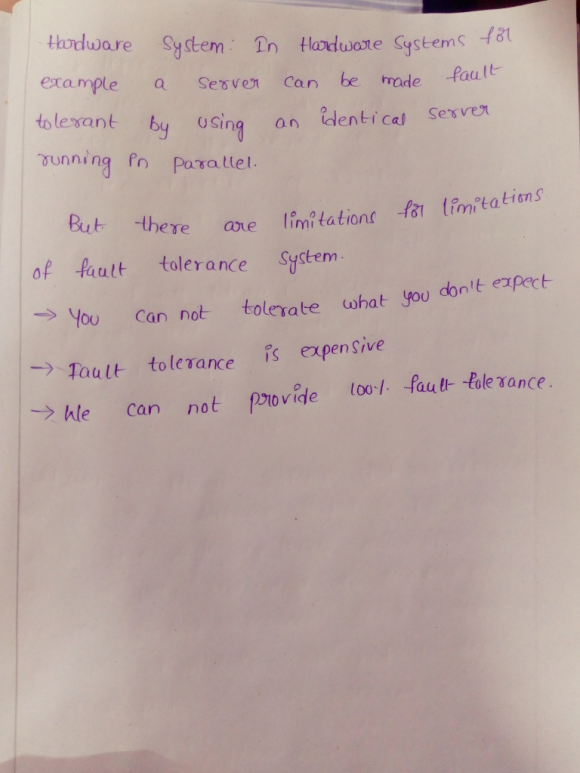 Hardware System: In Hardware Systems for
example a server can be made fault
tolerant by using an identical server
running in parallel.
But there are limitations for limitations
of fault tolerance system.
→ You can not tolerate what you don't expect
→ Fault tolerance is expensive
→ We can not provide 100% fault tolerance.